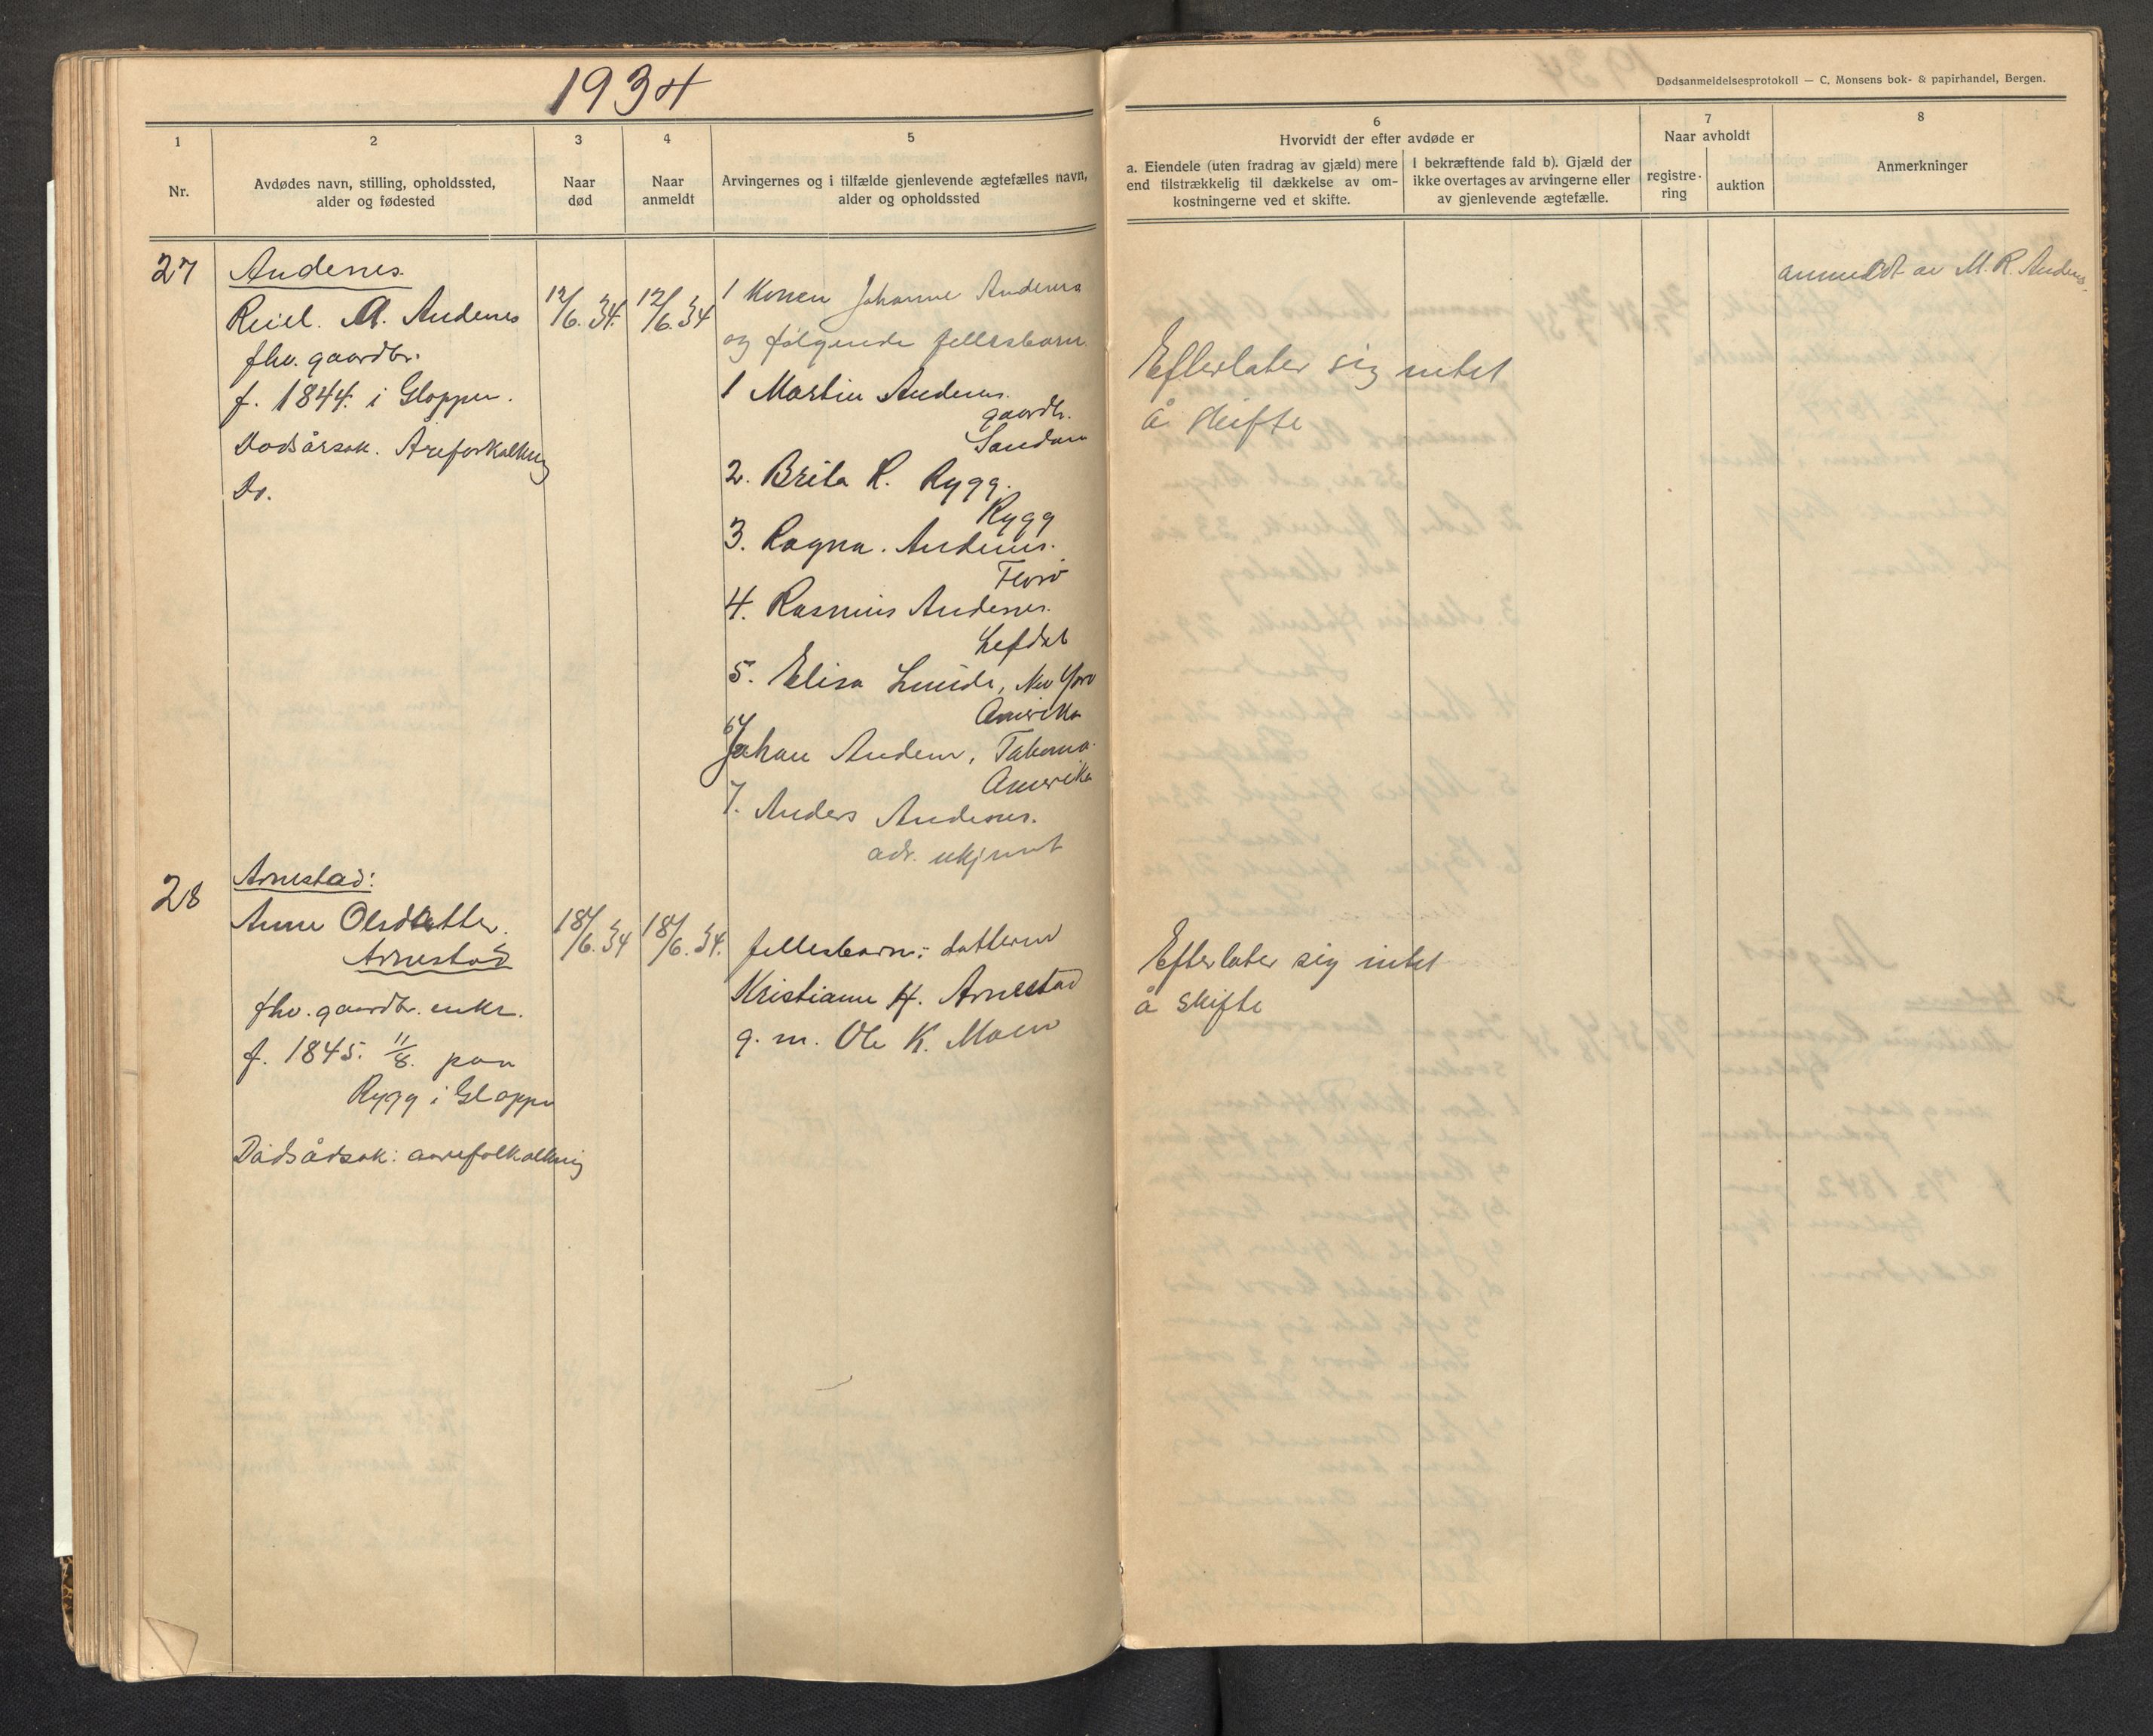 1934
1
2
3
4
5
Nr.
Avdødes navn, stilling, opholdssted,
alder og fødested
Naar
død
Naar
anmeldt
Arvingernes og i tilfælde gjenlevende ægtefælles navn,
alder og opholdssted
27
Andenes.
A. Andenes
fhv. gaardbr.
f. 1844. i Gloppen.
Dødsårsak. Areforkalkning
Do.
12/6. 34.
12/6. 34
1 Konen Johanne Andenes
og følgende fellesbarn
1 Martin Andenes.
gaardb.
Sandane
2. Brita R. Rygg.
Rygg
3. Ragna. Andenes.
Florø
4. Rasmus Andenes.
Lefdal
5. Elisa Lunde, New York
Amerika
6/ Johan Andenes, Takoma.
Amerika
7. Anders Andenes.
adr. ukjent
28
Arnestad:
Anne Olsdatter.
Arnestad
fhv. gaardbr. enke.
f. 1845. 11/8. paa
Rygg i Gloppen
Dødsådsak: aarefolkalkning
18/6. 34
18/6. 34.
fellesbarn: datteren
Kristianne H. Arnestad
g. m. Ole K. Moen
Dødsanmeldelsesprotokoll — C. Monsens bok- & papirhandel, Bergen.
6
Hvorvidt der efter avdøde er
a. Eiendele (uten fradrag av gjæld) mere
end tilstrækkelig til dækkelse av om-
kostningerne ved et skifte.
I bekræftende fald b). Gjæld der
ikke overtages av arvingerne eller
av gjenlevende ægtefælle.
7
Naar avholdt
registre-
ring
auktion
8
Anmerkninger
anmeldt av M. R. Andenes.
Efterlater sig intet
å skifte
Efterlater sig intet
å skifte